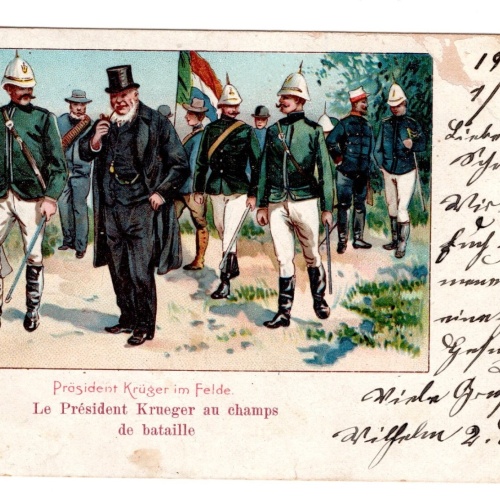 Präsident Krüger im Felde.
Le Président Krueger au champs
de bataille
19
1/
Liebe
Sch
Wir
Euch
eine
Viele Gr
Wilhelm